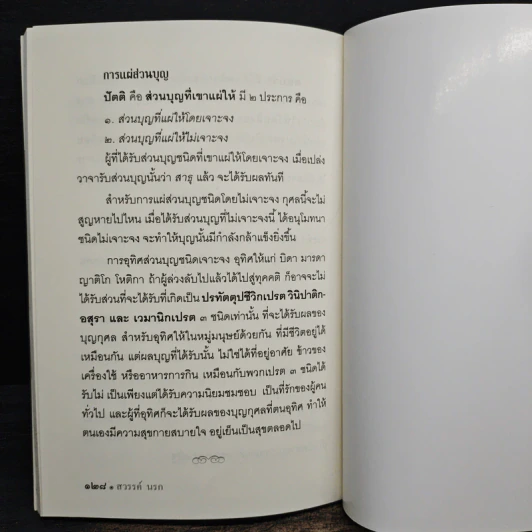 การแผ่ส่วนบุญ
ปัตติ คือ ส่วนบุญที่เขาแผ่ให้ มี ๒ ประการ คือ
๑. ส่วนบุญที่แผ่ให้โดยเจาะจง
๒. ส่วนบุญที่แผ่ให้ไม่เจาะจง
ผู้ที่ได้รับส่วนบุญชนิดที่เขาแผ่ให้โดยเจาะจง เมื่อเปล่ง
วาจารับส่วนบุญนั้นว่า สาธุ แล้ว จะได้รับผลทันที
สำหรับการแผ่ส่วนบุญชนิดโดยไม่เจาะจง กุศลนี้จะไม่
สูญหายไปไหน เมื่อได้รับส่วนบุญที่ไม่เจาะจงนี้ ได้อนุโมทนา
ชนิดไม่เจาะจง จะทำให้บุญนั้นมีกำลังกล้าแข็งยิ่งขึ้น
การอุทิศส่วนบุญชนิดเจาะจง อุทิศให้แก่ บิดา มารดา
ญาติโก โหติกา ถ้าผู้ล่วงลับไปแล้วได้ไปสู่ทุคคติ ก็อาจจะไม่
ได้รับส่วนที่จะได้รับที่เกิดเป็น ปรทัตตุปชีวิกเปรต วินิปาติก-
อสุรา และ เวมานิกเปรต ๓ ชนิดเท่านั้น ที่จะได้รับผลของ
บุญกุศล สำหรับอุทิศให้ในหมู่มนุษย์ด้วยกัน ที่มีชีวิตอยู่ได้
เหมือนกัน แต่ผลบุญที่ได้รับนั้น ไม่ใช่ได้ที่อยู่อาศัย ข้าวของ
เครื่องใช้ หรืออาหารการกิน เหมือนกับพวกเปรต ๓ ชนิดได้
รับไม่ เป็นเพียงแต่ได้รับความนิยมชมชอบ เป็นที่รักของผู้คน
ทั่วไป และผู้ที่อุทิศก็จะได้รับผลของบุญกุศลที่ตนอุทิศ ทำให้
ตนเองมีความสุขกายสบายใจ อยู่เย็นเป็นสุขตลอดไป
๑๒๘ • สวรรค์ นรก